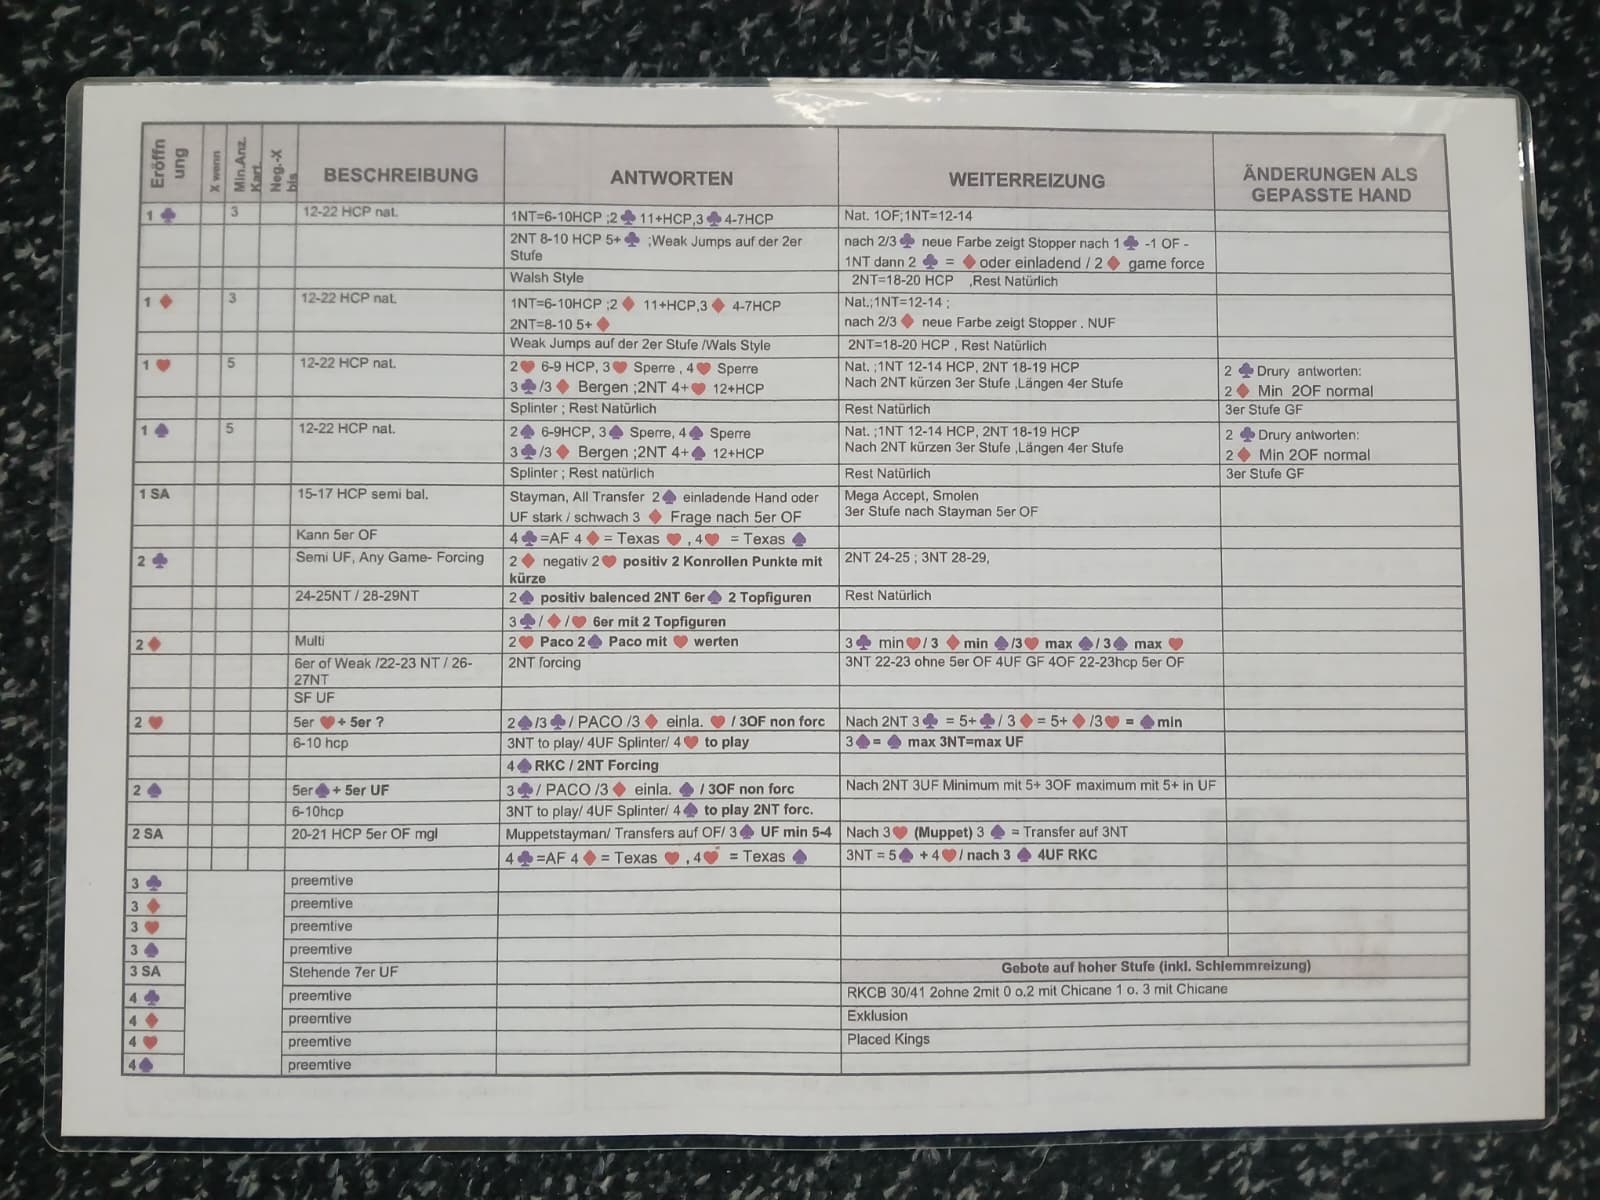 Eröffnung X wenn Min.Anz. Kart. Neg.-X bis BESCHREIBUNG ANTWORTEN WEITERREIZUNG ÄNDERUNGEN ALS GEPASSTE HAND
1 ♣ 3 12-22 HCP nat. 1NT=6-10HCP ;2 ♣ 11+HCP,3 ♣ 4-7HCP Nat. 1OF;1NT=12-14
2NT 8-10 HCP 5+ ♣ ;Weak Jumps auf der 2er Stufe nach 2/3 ♣ neue Farbe zeigt Stopper nach 1 ♣ -1 OF -
1NT dann 2 ♣ = ♦ oder einladend / 2 ♦ game force
Walsh Style 2NT=18-20 HCP ,Rest Natürlich
1 ♦ 3 12-22 HCP nat. 1NT=6-10HCP ;2 ♦ 11+HCP,3 ♦ 4-7HCP Nat.;1NT=12-14 ;
2NT=8-10 5+ ♦ nach 2/3 ♦ neue Farbe zeigt Stopper . NUF
Weak Jumps auf der 2er Stufe /Wals Style 2NT=18-20 HCP , Rest Natürlich
1 ♥ 5 12-22 HCP nat. 2♥ 6-9 HCP, 3♥ Sperre , 4♥ Sperre Nat. ;1NT 12-14 HCP, 2NT 18-19 HCP 2 ♣ Drury antworten:
3 ♣/3 ♦ Bergen ;2NT 4+♥ 12+HCP Nach 2NT kürzen 3er Stufe ,Längen 4er Stufe 2 ♦ Min 2OF normal
Splinter ; Rest Natürlich Rest Natürlich 3er Stufe GF
1 ♠ 5 12-22 HCP nat. 2♠ 6-9HCP, 3♠ Sperre, 4♠ Sperre Nat. ;1NT 12-14 HCP, 2NT 18-19 HCP 2 ♣ Drury antworten:
3 ♣/3 ♦ Bergen ;2NT 4+♠ 12+HCP Nach 2NT kürzen 3er Stufe ,Längen 4er Stufe 2 ♦ Min 2OF normal
Splinter ; Rest natürlich Rest Natürlich 3er Stufe GF
1 SA 15-17 HCP semi bal. Stayman, All Transfer 2♠ einladende Hand oder Mega Accept, Smolen
UF stark / schwach 3 ♦ Frage nach 5er OF 3er Stufe nach Stayman 5er OF
Kann 5er OF 4 ♣=AF 4 ♦ = Texas ♥ , 4♥ = Texas ♠
2 ♣ Semi UF, Any Game- Forcing 2 ♦ negativ 2♥ positiv 2 Konrollen Punkte mit kürze 2NT 24-25 ; 3NT 28-29,
24-25NT / 28-29NT 2♠ positiv balenced 2NT 6er♠ 2 Topfiguren Rest Natürlich
3 ♣/ ♦/♥ 6er mit 2 Topfiguren
2 ♦ Multi 2♥ Paco 2♠ Paco mit ♥ werten 3 ♣ min♥/ 3 ♦ min ♠/3♥ max ♠/ 3♠ max ♥
6er of Weak /22-23 NT / 26-27NT 2NT forcing 3NT 22-23 ohne 5er OF 4UF GF 4OF 22-23hcp 5er OF
SF UF
2 ♥ 5er ♥+ 5er ? 2♠/3♣/ PACO /3♦ einla. ♥ / 3OF non forc Nach 2NT 3♣ = 5+♣/ 3 ♦= 5+♦/3♥ = ♠min
6-10 hcp 3NT to play/ 4UF Splinter/ 4♥ to play 3♠= ♠ max 3NT=max UF
4♠RKC / 2NT Forcing
2 ♠ 5er♠+ 5er UF 3♣/ PACO /3♦ einla. ♠ / 3OF non forc Nach 2NT 3UF Minimum mit 5+ 3OF maximum mit 5+ in UF
6-10hcp 3NT to play/ 4UF Splinter/ 4♠ to play 2NT forc.
2 SA 20-21 HCP 5er OF mgl Muppetstayman/ Transfers auf OF/ 3♠ UF min 5-4 Nach 3♥ (Muppet) 3 ♠ = Transfer auf 3NT
4 ♣=AF 4 ♦ = Texas ♥ , 4♥ = Texas ♠ 3NT = 5♠ + 4♥/ nach 3 ♠ 4UF RKC
3 ♣ preemtive
3 ♦ preemtive
3 ♥ preemtive
3 ♠ preemtive
3 SA Stehende 7er UF Gebote auf hoher Stufe (inkl. Schlemmreizung)
4 ♣ preemtive RKCB 30/41 2ohne 2mit 0 o.2 mit Chicane 1 o. 3 mit Chicane
4 ♦ preemtive Exklusion
4 ♥ preemtive Placed Kings
4♠ preemtive